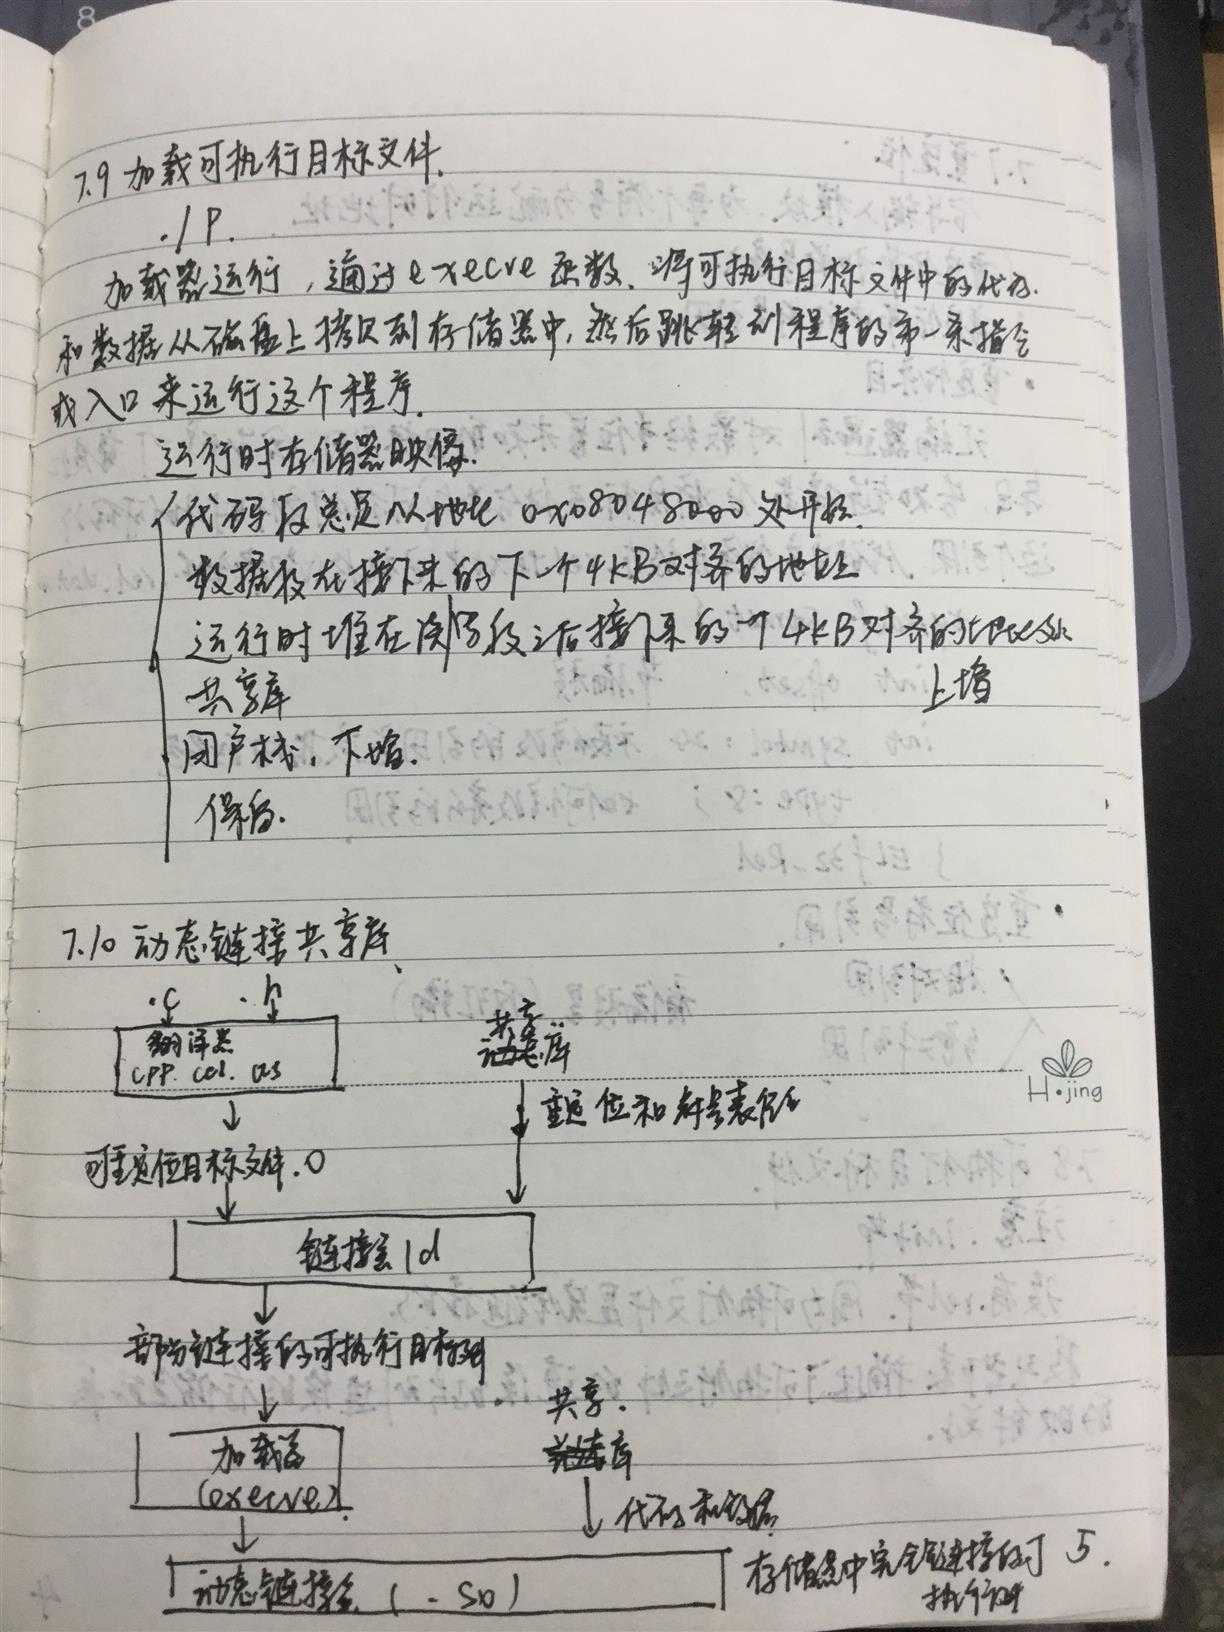 8
7.9 加载可执行目标文件.
./P.
加载器运行，通过execve函数、将可执行目标文件中的代码
和数据从磁盘上拷贝到存储器中，然后跳转到程序的第一条指令
或入口来运行这个程序.
运行时存储器映像.
代码段总是从地址 0x08048000 处开始.
数据段在接下来的下一个4KB对齐的地址
运行时堆在读写段之后接下来的一个4KB对齐的地址处
上增
共享库
用户栈，下增.
保留.
7.10 动态链接共享库、
.c .h
翻译器
cpp. cc1. as
共享
库
重定位和符号表信息
可重定位目标文件.o
链接器 ld
部分链接的可执行目标
加载器
(execve)
共享.
库
代码和数据
动态链接器 ( .so)
存储器中完全链接的可
执行
5.
H·jing